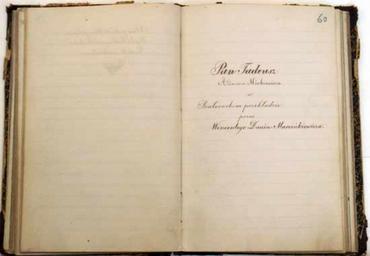 60
Pan Tadeusz
Adama Mickiewicza
w
przekładzie
przez
Wincentego Dunin Marcinkiewicza.